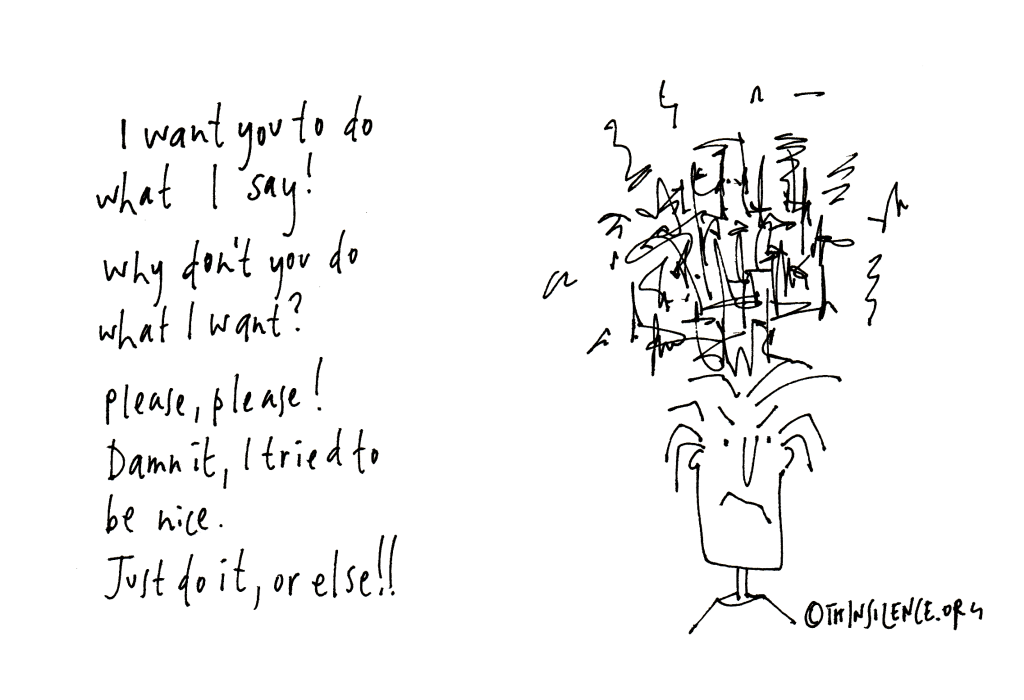 I want you to do
what I say!
why don't you do
what I want?
please, please!
Damn it, I tried to
be nice.
Just do it, or else!!
©THINSILENCE.ORG